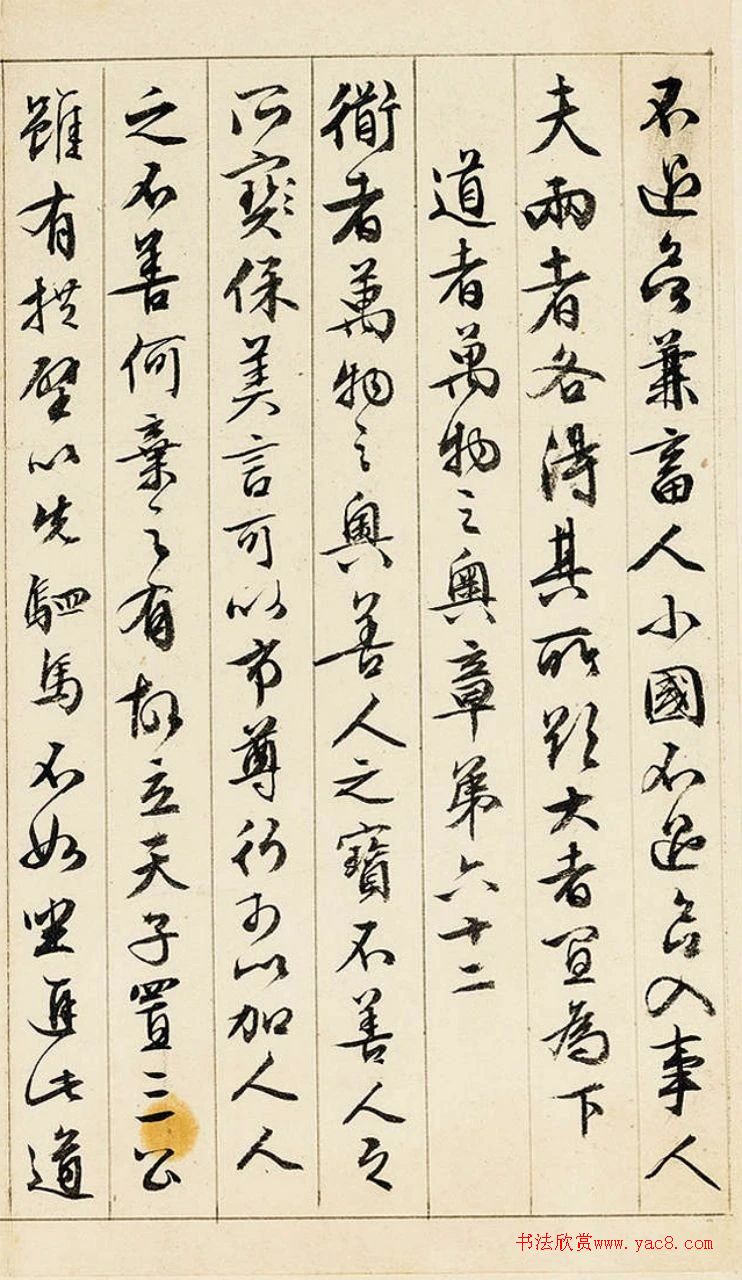 不過欲兼畜人小國不過欲入事人
夫兩者各得其所欲大者宜為下
道者萬物之奧章第六十二
衜者萬物之奧善人之寶不善人之
所寶保美言可以市尊行可以加人人
之不善何棄之有故立天子置三公
雖有拱璧以先駟馬不如坐進此道
书法欣赏www.yac8.com